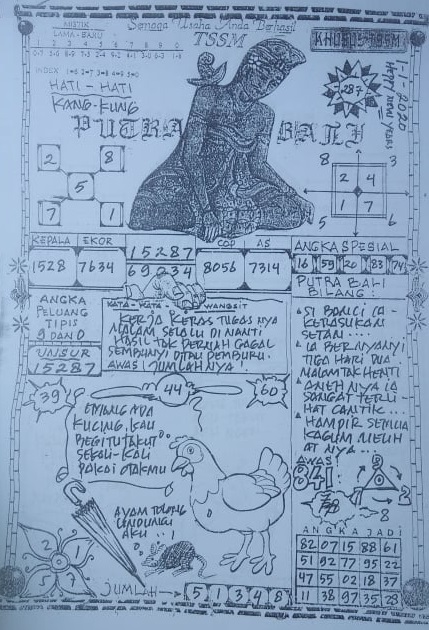 Semoga Usaha Anda Berhasil
TSSM
KHUSUS TSSM
MISTIK
LAMA - BARU
INDEX
HATI - HATI
KANG-KUNG
PUTRA BALI
287
1-1-2020
HAPPY NEW YEARS
2 8
5
7 1
8 3
2 4
1 7
5 6
KEPALA EKOR 15287 COP AS
1528 7634 69034 8056 7314
ANGKA SPESIAL
16 59 20 83 74
ANGKA
PELUANG
TIPIS
9 DAN 0
UNSUR
15287
KATA - KATA WANGSIT
KERJA KERAS TUGAS NYA
MALAM SELALU DI NANTI
HASIL TAK PERNAH GAGAL
SEMBUNYI DITPU PEMBURU
AWAS! JUMLAH NYA!
PUTRA BALI
BILANG:
SI BONCI LA-
KERASUKAN
SETAN....
IA BERNYANYI
TIGA HARI DUA
MALAM TAK HENTI
ANEH NYA IA
SANGAT TERLI-
HAT CANTIK...
HAMPIR SEMUA
KAGUM MELIH
AT NYA...
AWAS!
841
8
2
8
39
44
60
EMBANG ADA
KUCING, KAU
BEGITU TAKUT
SEKALI-KALI
PAKAI OTAKMU
AYAM TOLONG
LINDUNGI
AKU..!
2 1
5 7
JUMLAH → 5 1 3 4 8
ANGKA JADI
82 07 15 88 61
51 92 77 95 22
47 55 02 18 37
11 38 97 35 28